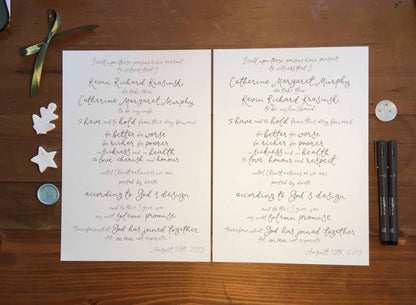 I call upon these persons here present
to witness that I
Kevin Richard Krasinski
do take thee
Catherine Margaret Murphy
to be my wife
To have and to hold from this day forward
for better for worse
for richer for poorer
in sickness and in health
to love, cherish and honour
until Christ returns or we are
parted by death
according to God's design
and to this I give you
my most solemn promise
Therefore what God has joined together
let man not separate
August 10th, 2013
I call upon these persons here present
to witness that I
Catherine Margaret Murphy
do take thee
Kevin Richard Krasinski
to be my husband
To have and to hold from this day forward
for better for worse
for richer for poorer
in sickness and in health
to love, honour and respect
until Christ returns or we are
parted by death
according to God's design
and to this I give you
my most solemn promise
Therefore what God has joined together
let man not separate
August 10th, 2013